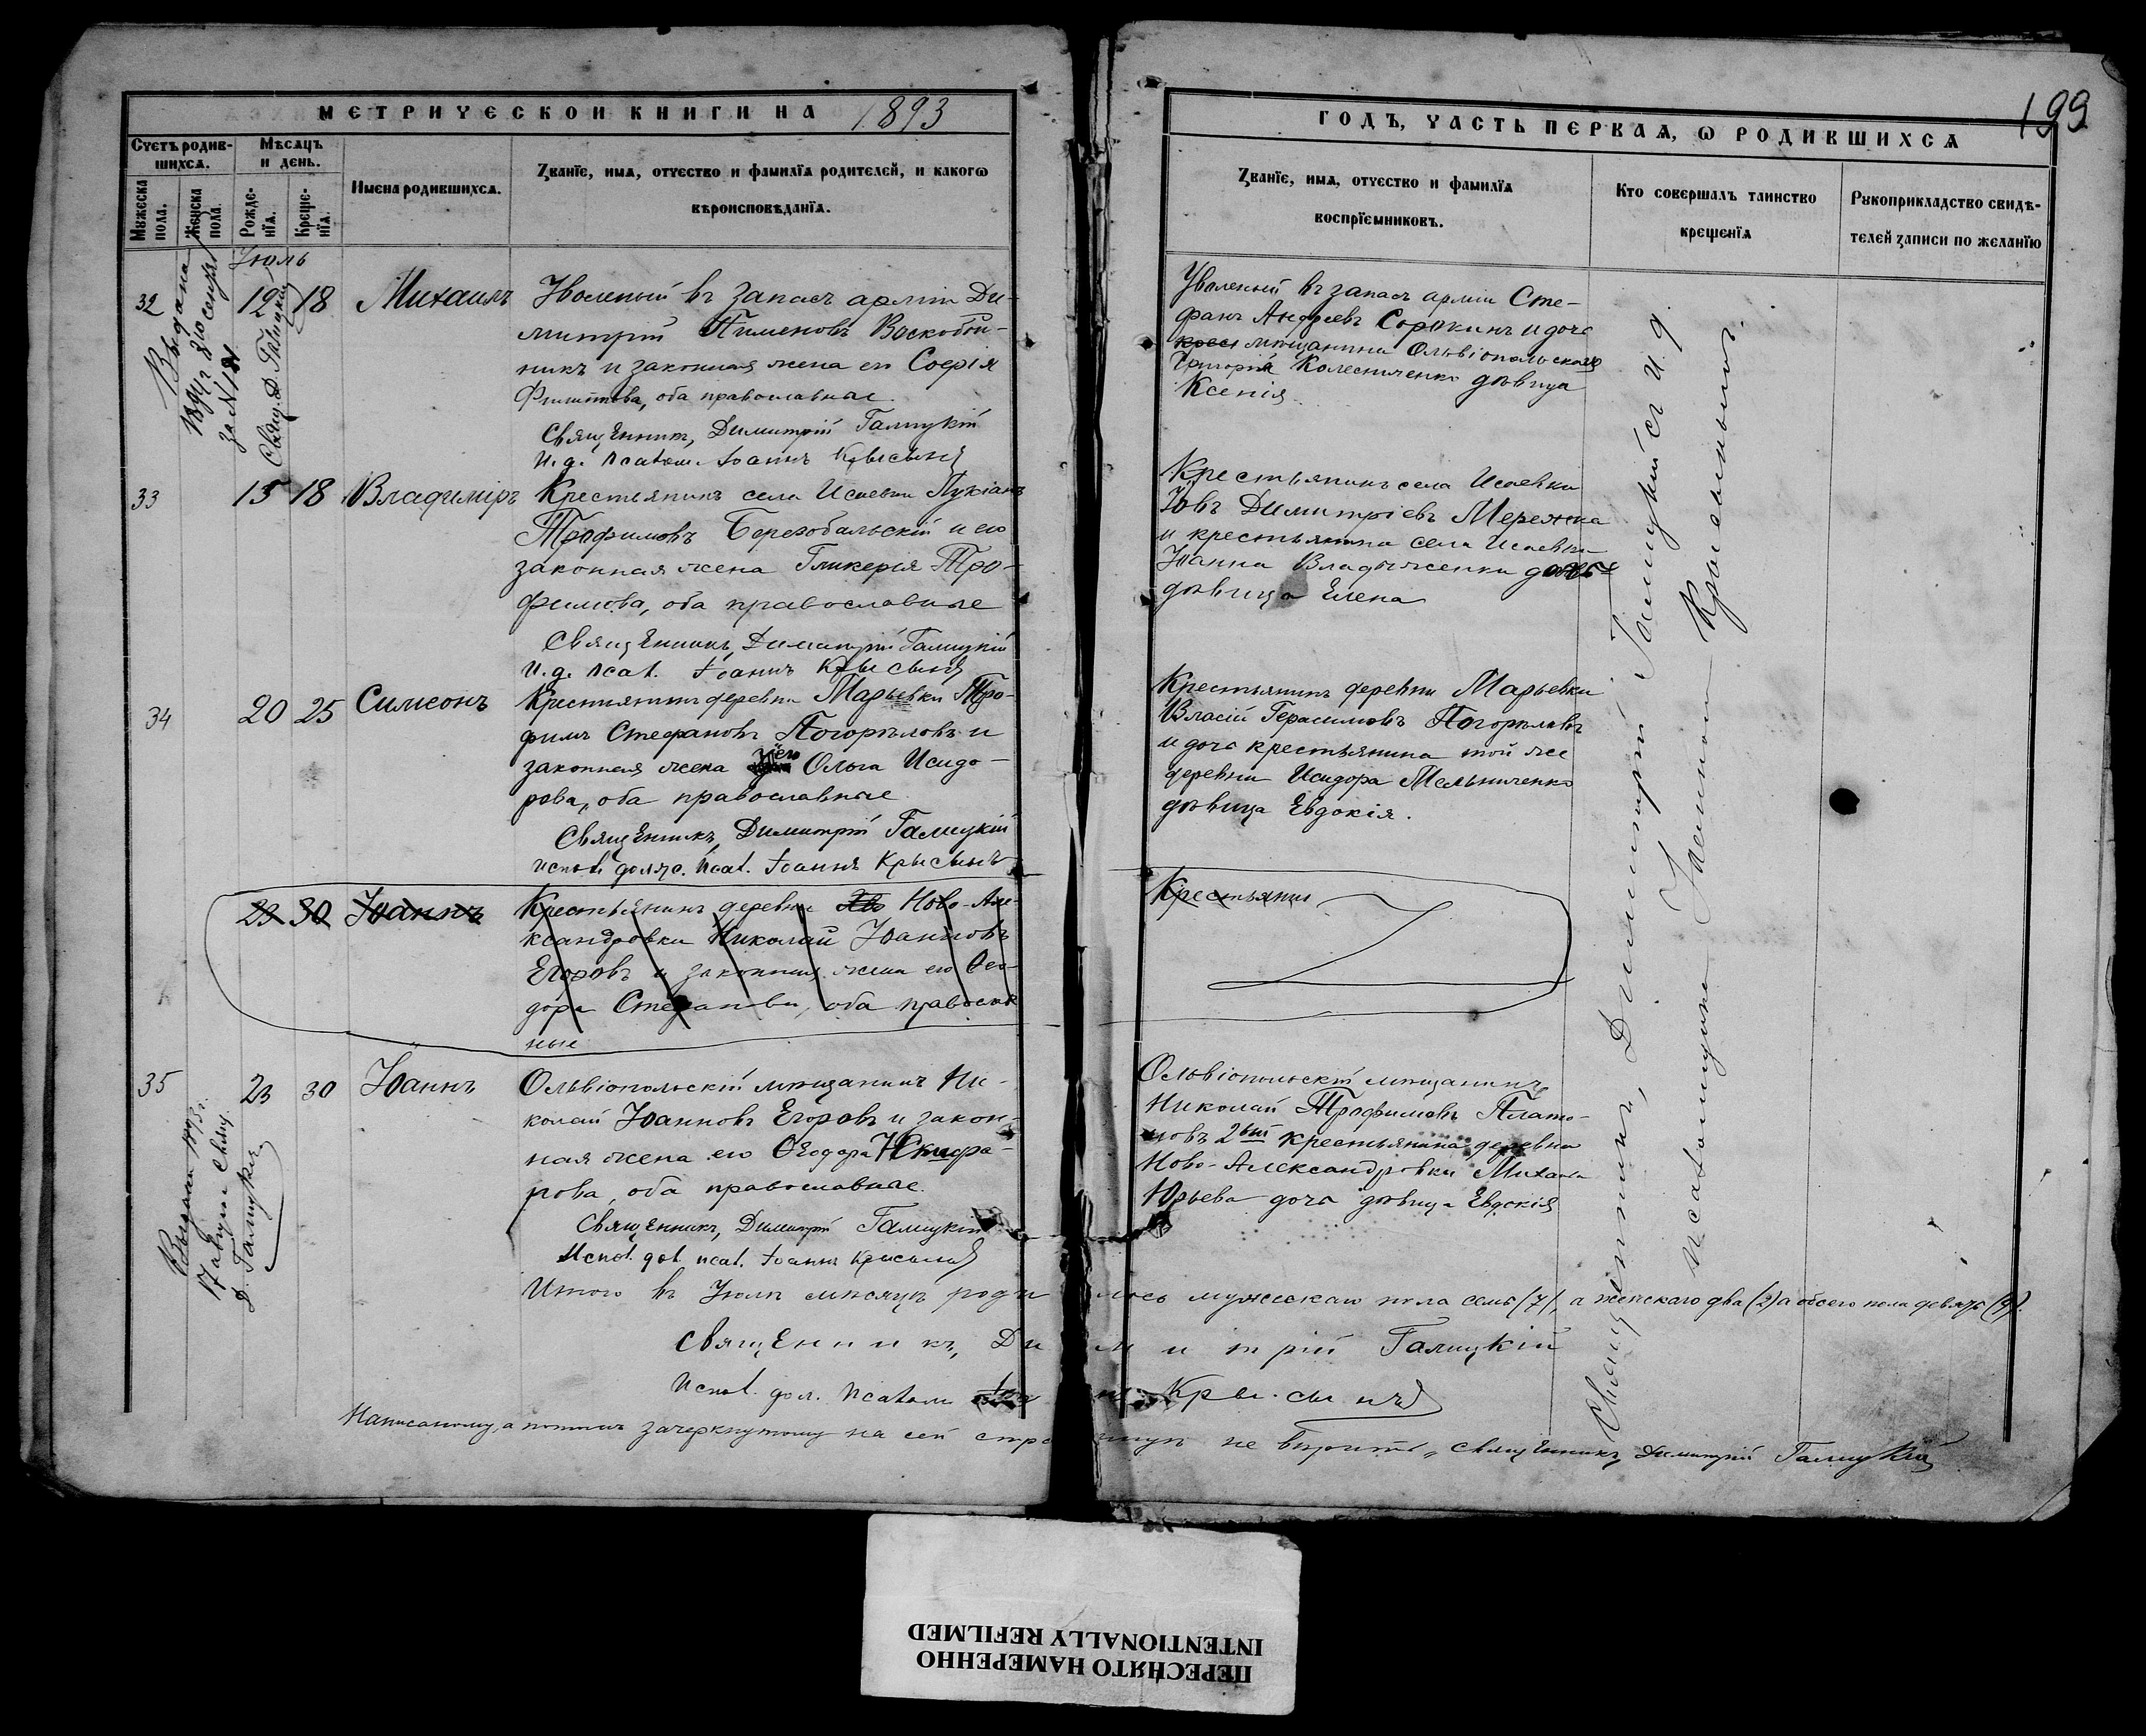 МЕТРИЧЕСКОЙ КНИГИ НА 1893
Счетъ родившихся.
Мѣсяцъ и день.
Мужеска пола.
Женска пола.
Рожденія.
Крещенія.
Имена родившихся.
Званіе, имя, отчество и фамилія родителей, и какого
вѣроисповѣданія.
Іюль
32
12 18
Михаилъ
Уволеный въ запасъ арміи Ди-
митрій Пименовъ Воскобой-
никъ и законная жена его Софія
Филиппова, оба православные.
Священникъ, Димитрій Галицкій
И. д. псалом. Іоаннъ Крысынъ
Выдана
за №
Свящ. Д. Галицкій
33
15 18
Владиміръ
Крестьянинъ села Исаевки Лукіанъ
Трофимовъ и его
законная жена Гликерія Тро-
фимова, оба православные
Священникъ, Димитрій Галицкій
И. д. псал. Іоаннъ Крысынъ
34
20 25
Симеонъ
Крестьянинъ деревни Марьевки Тро-
фимъ Стефановъ Погорѣловъ и
законная жена его Ольга Исидо-
рова, оба православные
Священникъ, Димитрій Галицкій
Испол. долж. псал. Іоаннъ Крысынъ
23 30 Іоаннъ
Крестьянинъ деревни Ново-Але-
ксандровки Николай Іоанновъ
Егоровъ и законная жена его Ѳео-
дора оба православ
ные
35
23 30
Іоаннъ
Ольвіопольскій мѣщанинъ Ни-
колай Іоанновъ Егоровъ и закон-
ная жена его Ѳеодора
рова, оба православные.
Священникъ, Димитрій Галицкій
Испол. дол. псал. Іоаннъ Крысынъ
17 августа Свящ.
Д. Галицкій
ГОДЪ, ЧАСТЬ ПЕРВАЯ, О РОДИВШИХСЯ
199
Званіе, имя, отчество и фамилія
воспріемниковъ.
Кто совершалъ таинство
крещенія
Рукоприкладство свидѣ-
телей записи по желанію
Уволеный въ запасъ арміи Сте-
фанъ Андреевъ Сорокинъ и дочь
мѣщанина Ольвіопольскаго
Григорія Колесниченко дѣвица
Ксенія
Крестьянинъ села Исаевки
Іовъ Димитріевъ Мережка
и крестьянина села Исаевки
Іоанна дочь
дѣвица Елена
Крестьянинъ деревни Марьевки
Власій Герасимовъ Погорѣловъ
и дочь крестьянина той же
деревни Исидора Мельниченко
дѣвица Евдокія.
Крестьянин
Ольвіопольскій мѣщанинъ
Николай Трофимовъ Плато-
новъ 2ый крестьянина деревни
Ново-Александровки Михаила
Юрьева дочь дѣвица Евдокія
Священникъ, Димитрій Галицкій съ И. д.
псаломщика Іоанномъ
Итого въ Іюлѣ мѣсяцѣ родилось мужескаго пола семь (7), а женскаго два (2) а обоего пола девять (9).
Священникъ, Димитрій Галицкій
Испол. дол. псалом. Крысынъ
Написаному, а потомъ зачеркнутому на сей страницѣ не вѣрить, священникъ Димитрій Галицкій
ПЕРЕСНЯТО НАМЕРЕННО
INTENTIONALLY REFILMED